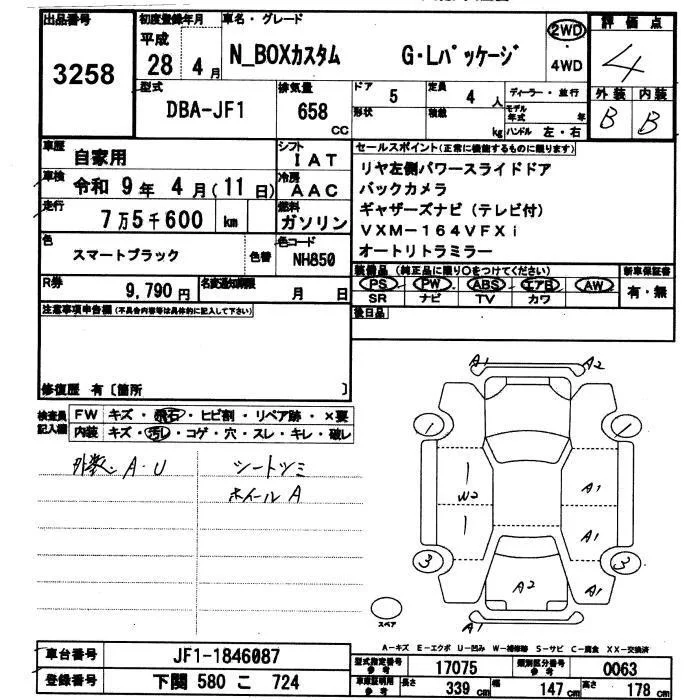 出品番号
3258
初度登録年月
平成
28年 4月
車名・グレード
N_BOXカスタム G・Lパッケージ
2WD
・
4WD
評価点
4
外装 内装
B B
型式
DBA-JF1
排気量
658
CC
ドア 5
形状
定員 4 人
積載 kg
ディーラー・並行
モデル年式 年
ハンドル 左・右
車歴
自家用
シフト
IAT
車検
令和 9年 4月(11日)
冷房
AAC
走行
7万5千600 km
燃料
ガソリン
色
スマートブラック
色替
色コード
NH850
R券
9,790円
名変通知期限
月 日
セールスポイント(正常に機能するものに限ります)
リヤ左側パワースライドドア
バックカメラ
ギャザーズナビ(テレビ付)
VXM-164VFXi
オートリトラミラー
装備品 (純正品に限り○をつけてください)
PS PW ABS エアB AW
SR ナビ TV カワ
新車保証書
有・無
後日品
注意事項申告欄(不具合内容等は具体的に記入して下さい)
修復歴 有〔箇所 〕
検査員
記入欄
FW キズ・飛石・ヒビ割・リペア跡・×要
内装 キズ・汚レ・コゲ・穴・スレ・キレ・破レ
外装 A・U
シートシミ
ホイールA
A1 A2
1 1
W2
A1
A1
3 3
A2
A1
A1
スペア
A-キズ E-エクボ U-凹み W-補修跡 S-サビ C-腐食 XX-交換済
車台番号
JF1-1846087
登録番号
下関 580 こ 724
型式指定番号
参考
17075
類別区分番号
参考
0063
車庫証明用
参考
長さ 339 cm
幅 147 cm
高さ 178 cm